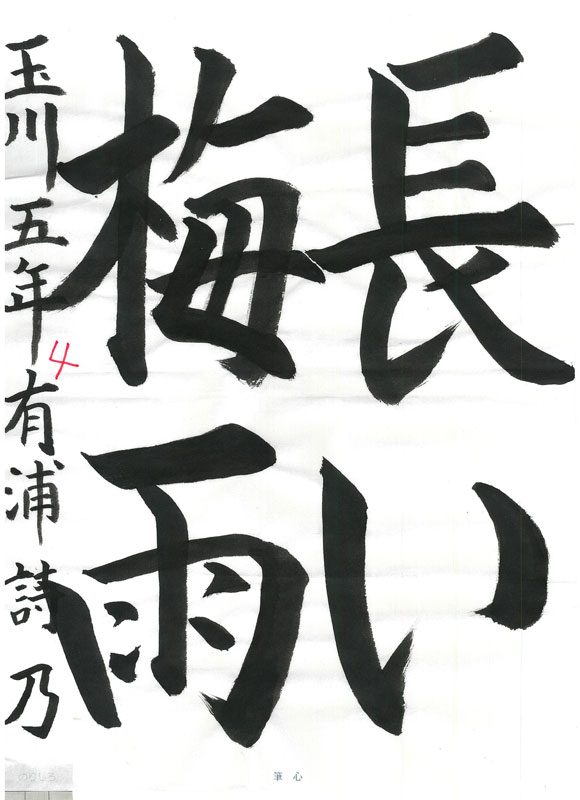 長い
梅雨
玉川五年有浦詩乃
4
のりしろ
筆心